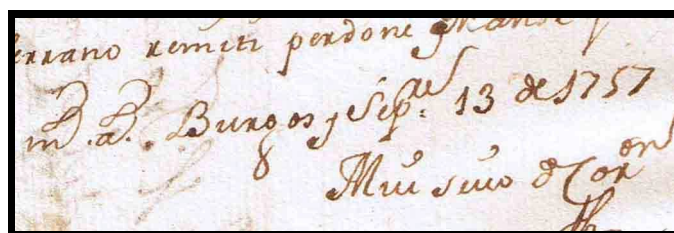 errano remiti perdone y mande
m.ª a.ª Burgos y Sepᵗʳᵉ 13 de 1757
Mui suio de Corᵒⁿ